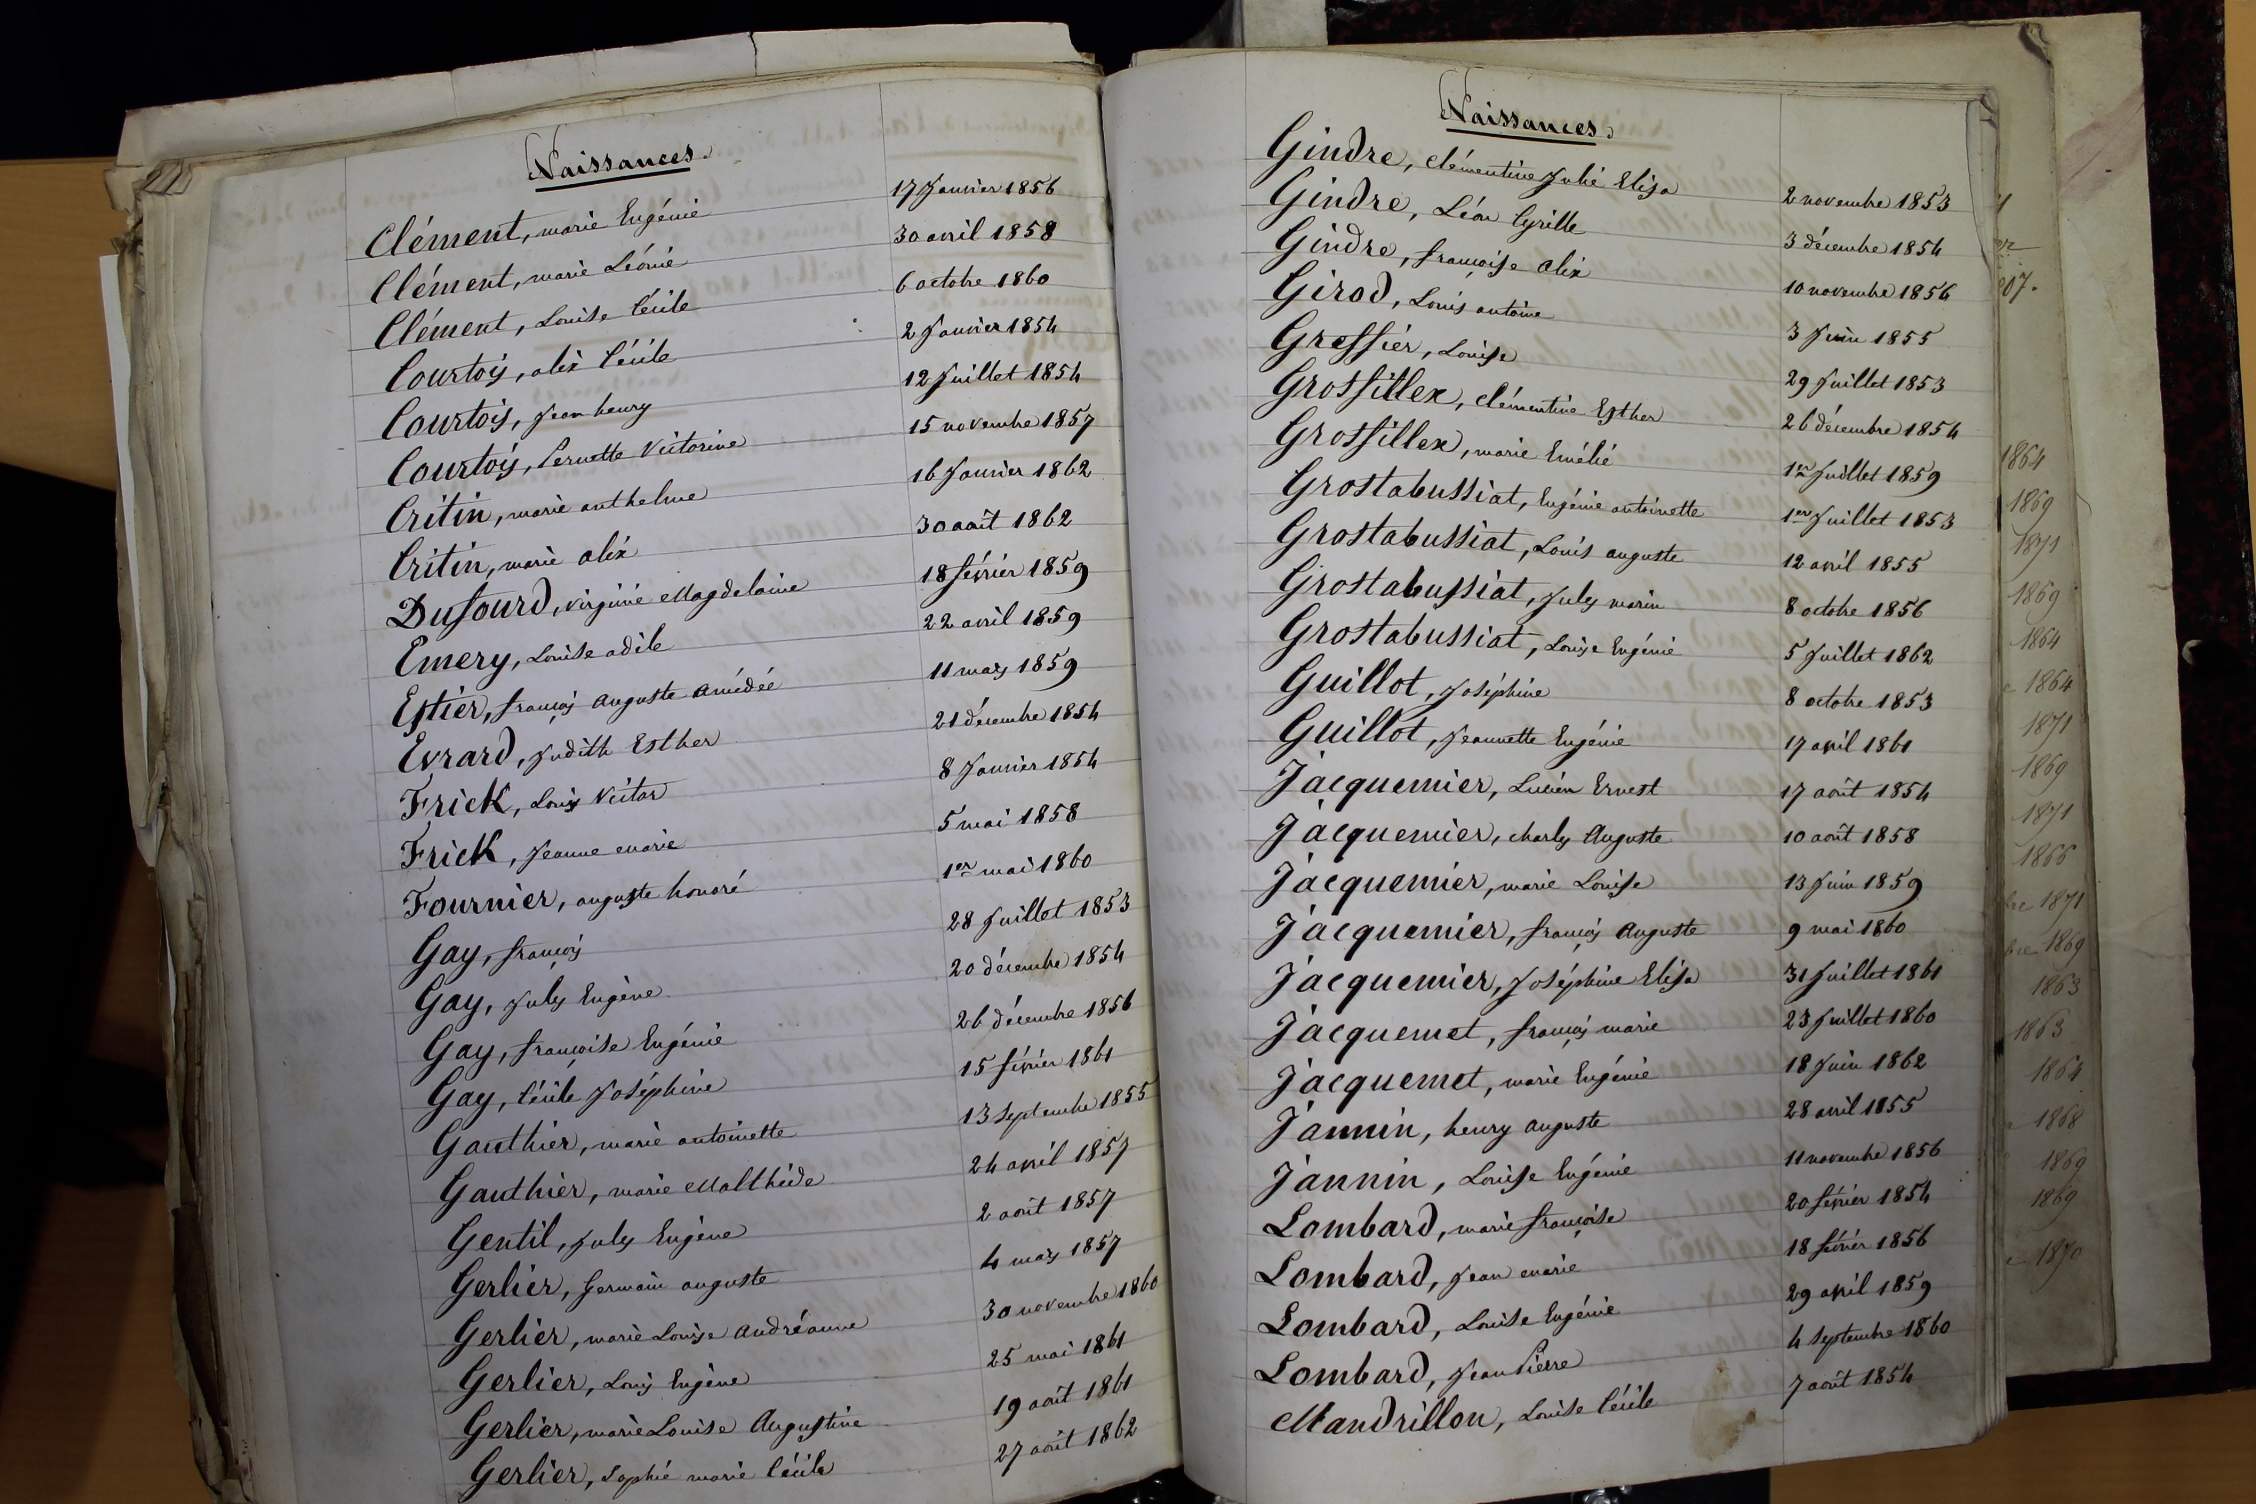 Naissances.
Clément, marie Eugénie 17 Janvier 1856
Clément, marie Léonie 30 avril 1858
Clément, Louise Cécile 6 octobre 1860
Courtois, alix Cécile 2 Janvier 1854
Courtois, Jean henry 12 Juillet 1854
Courtois, Pernette Victorine 15 novembre 1857
Critin, marie anthelme 16 Janvier 1862
Critin, marie alix 30 août 1862
Dufourd, Virginie Magdelaine 18 février 1859
Emery, Louise adèle 22 avril 1859
Estier, françois auguste amédée 11 mars 1859
Evrard, Judith Esther 21 décembre 1854
Frick, Louis Victor 8 Janvier 1854
Frick, Jeanne marie 5 mai 1858
Fournier, auguste honoré 1er mai 1860
Gay, françois 28 Juillet 1853
Gay, Jules Eugène 20 décembre 1854
Gay, françoise Eugénie 26 décembre 1856
Gay, Cécile Joséphine 15 février 1861
Gauthier, marie antoinette 13 septembre 1855
Gauthier, marie Malthide 24 avril 1857
Gentil, Jules Eugène 2 août 1857
Gerlier, Germain auguste 4 mars 1857
Gerlier, marie Louise andréanne 30 novembre 1860
Gerlier, Louis Eugène 25 mai 1861
Gerlier, marie Louise Augustine 19 août 1861
Gerlier, Sophie marie Cécile 27 août 1862
Naissances.
Gindre, Clémentine Julie Elisa 2 novembre 1853
Gindre, Léon Cyrille 3 décembre 1854
Gindre, françoise alix 10 novembre 1856
Girod, Louis antoine 3 Juin 1855
Greffier, Louise 29 Juillet 1853
Grosfillex, Clémentine Esther 26 décembre 1854
Grosfillex, marie Emélie 1er Juillet 1859
Grostabussiat, Eugénie antoinette 1er Juillet 1853
Grostabussiat, Louis auguste 12 avril 1855
Grostabussiat, Jules marin 8 octobre 1856
Grostabussiat, Louise Eugénie 5 Juillet 1862
Guillot, Joséphine 8 octobre 1853
Guillot, Jeannette Eugénie 17 avril 1861
Jacquemier, Lucien Ernest 17 août 1854
Jacquemier, charles Auguste 10 août 1858
Jacquemier, marie Louise 13 Juin 1859
Jacquemier, françois Auguste 9 mai 1860
Jacquemier, Joséphine Elisa 31 Juillet 1861
Jacquemet, françois marie 23 Juillet 1860
Jacquemet, marie Eugénie 18 Juin 1862
Jannin, henry auguste 28 avril 1855
Jannin, Louise Eugénie 11 novembre 1856
Lombard, marie françoise 20 février 1854
Lombard, Jean marie 18 février 1856
Lombard, Louise Eugénie 29 avril 1859
Lombard, Jean Pierre 4 septembre 1860
Mandrillon, Louise Cécile 7 août 1854
1864
1869
1871
1869
1864
1864
1871
1869
1871
1866
1871
1869
1863
1863
1864
1868
1869
1869
1870